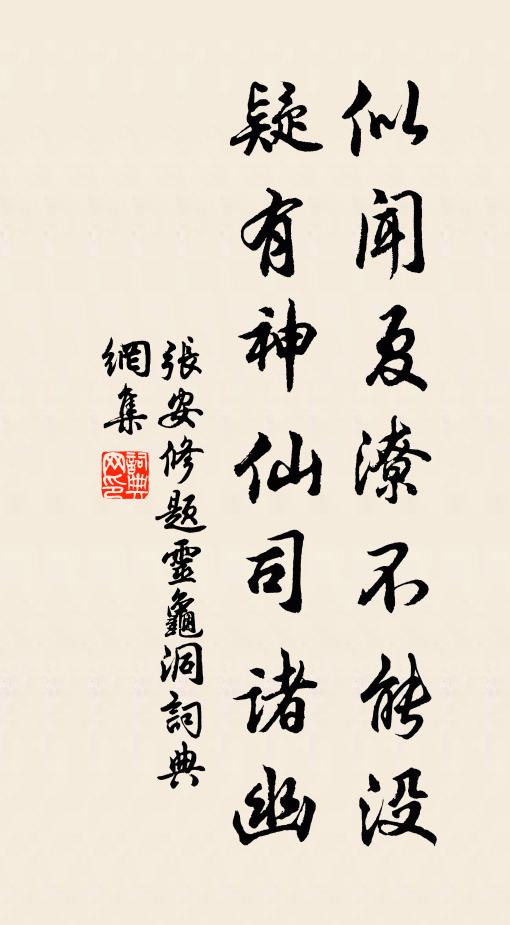 似闻夏潦不能没
疑有神仙司诸幽
張安修题靈龜洞詞典
網集
詞典
网印